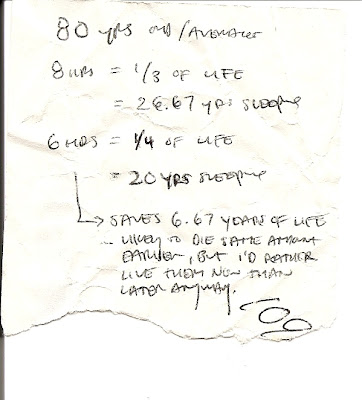 80 yrs old/AVERAGE
8 HRS = 1/3 OF LIFE
= 26.67 yrs SLEEPING
6 HRS = 1/4 OF LIFE
= 20 YRS SLEEPING
→ SAVES 6.67 YEARS OF LIFE
LIKELY TO DIE SAME AMOUNT
EARLIER, BUT I'D RATHER
LIVE THEM NOW THAN
LATER ANYWAY.